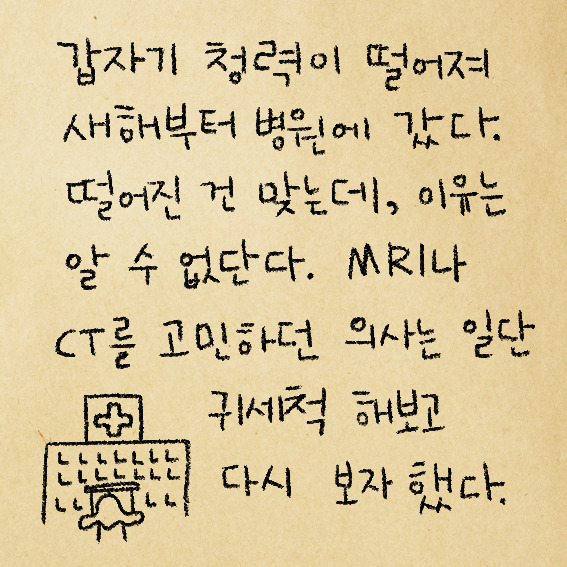 갑자기 청력이 떨어져
새해부터 병원에 갔다.
떨어진 건 맞는데, 이유는
알 수 없단다. MRI나
CT를 고민하던 의사는 일단
귀세척 해보고
다시 보자 했다.